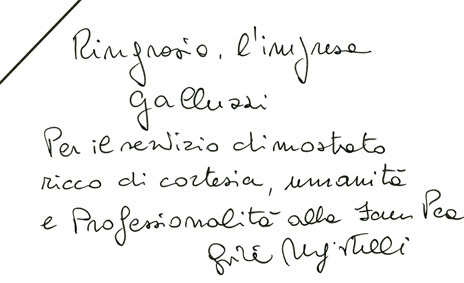 Ringrazio, l'impresa
Galluzzi
Per il servizio dimostrato
ricco di cortesia, umanità
e Professionalità alla